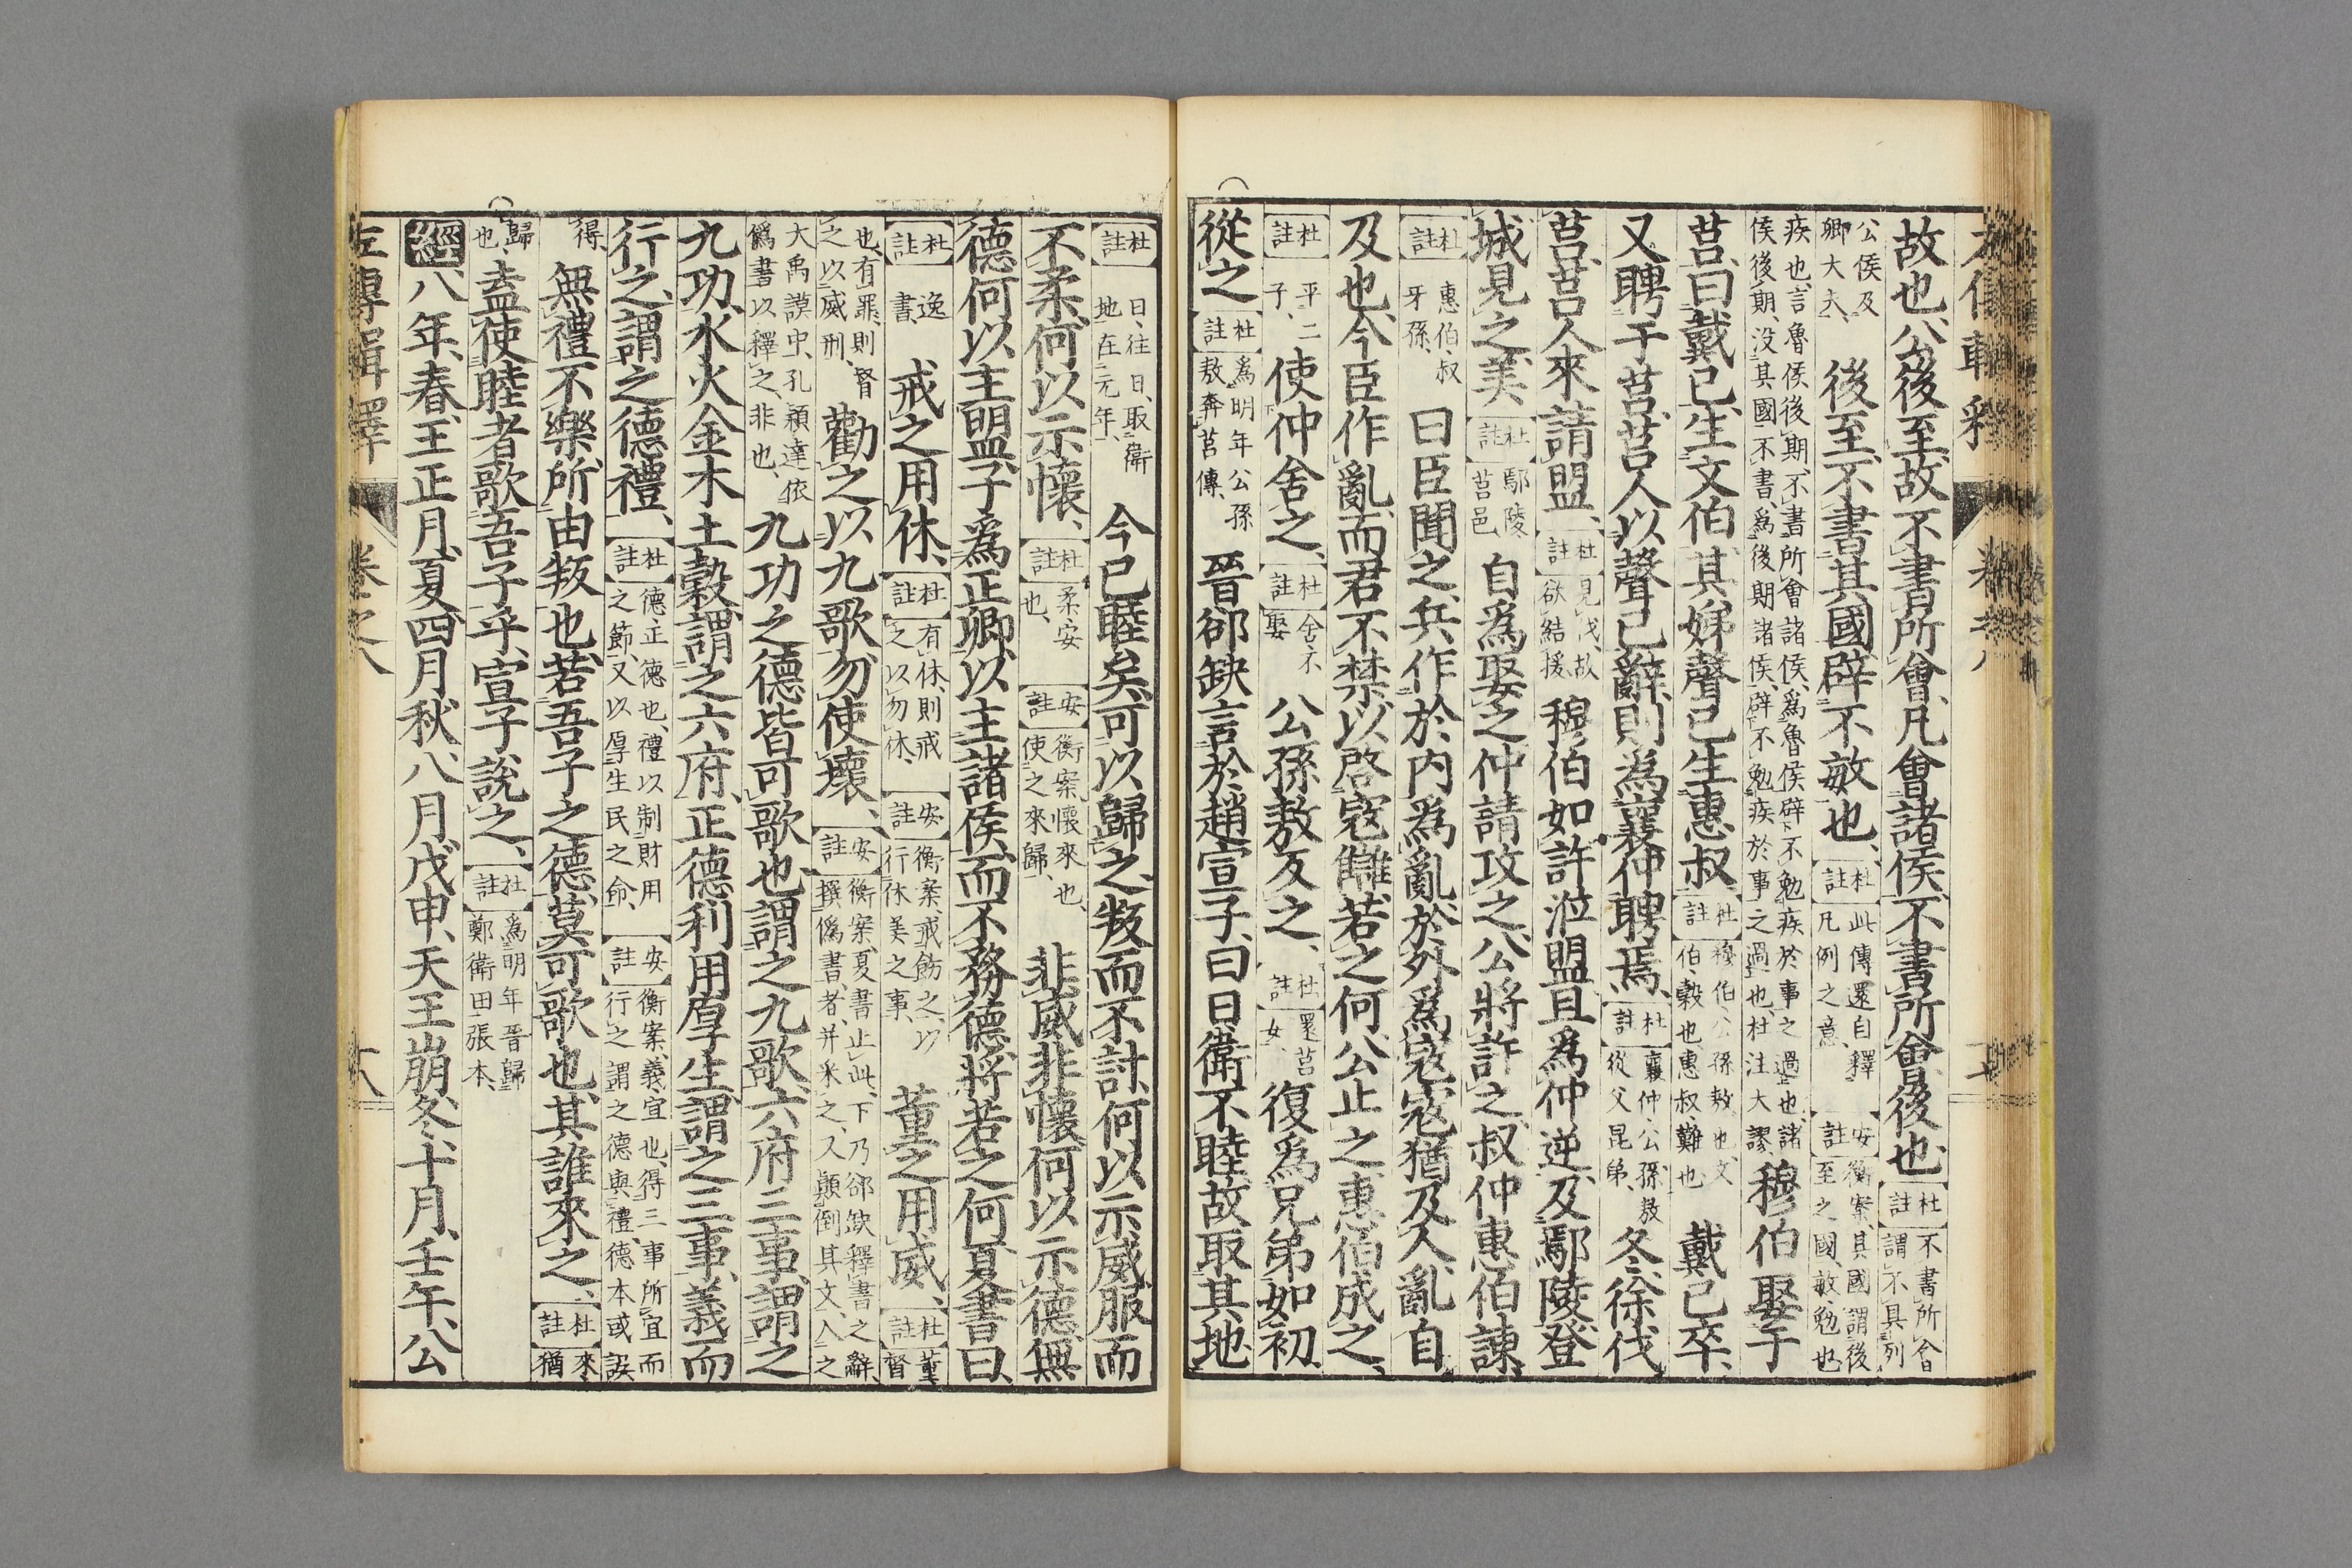 故也、公後至、故不書所會、凡會諸侯、不書所會、後也、杜註不書所會謂不具列
公侯及卿大夫、後至、不書其國、辟不敏也、杜註此傳還自釋凡例之意、安註衡案、其國謂後至之國、敏、勉也
疾也、言魯侯後期、不書所會諸侯、爲魯侯辟不勉疾於事之過也、諸侯後期、没其國不書、爲後期諸侯、辟不勉疾於事之過也、杜注大謬、穆伯娶于
莒、曰戴己、生文伯、其娣聲己生惠叔、杜註穆伯、公孫敖也、文伯、穀也、惠叔、難也、戴己卒、
又聘于莒、莒人以聲己辭、則爲襄仲聘焉、杜註襄仲、公孫敖從父昆弟、冬、徐伐
莒、莒人來請盟、杜註見伐、故欲結援、穆伯如許涖盟、且爲仲逆、及鄢陵、登
城見之、美、杜註鄢陵莒邑、自爲娶之、仲請攻之、公將許之、叔仲惠伯諫、
杜註惠伯、叔牙孫、曰、臣聞之、兵作於内爲亂、於外爲寇、寇猶及人、亂自
及也、今臣作亂、而君不禁、以啓寇讎、若之何、公止之、惠伯成之、
杜註平二子、使仲舍之、杜註舍不娶、公孫敖反之、杜註還莒女、復爲兄弟如初、
從之、杜註爲明年公孫敖奔莒傳、晉郤缺言於趙宣子曰、日衛不睦、故取其地、
杜註日、往日、取衛地、在元年、今已睦矣、可以歸之、叛而不討、何以示威、服而
不柔、何以示懷、杜註柔、安也、安註衡案、懷、來也、使之來歸、非威非懷、何以示德、無
德、何以主盟、子爲正卿、以主諸侯、而不務德、將若之何、夏書曰、
杜註逸書、戒之用休、杜註有休、則戒之以勿休、安註衡案、戒飭之以行休美之事、董之用威、杜註董督
也、有罪、則督之以威刑、勸之以九歌、勿使壞、安註衡案、夏書止此、下乃郤缺釋書之辭、撰僞書者、并采之、又顛倒其文、入之
大禹謨中、孔穎達依僞書以釋之、非也、九功之德、皆可歌也、謂之九歌、六府三事、謂之
九功、水火金木土穀、謂之六府、正德利用厚生、謂之三事、義而
行之、謂之德禮、杜註德、正德也、禮以制財用之節、又以厚生民之命、安註衡案、義、宜也、得三事所宜而行之、謂之德與禮、德本或誤
得、無禮不樂、所由叛也、若吾子之德、莫可歌也、其誰來之、杜註來猶
歸也、盍使睦者歌吾子乎、宣子說之、杜註爲明年晉歸鄭衛田張本、
經八年、春、王正月、夏、四月、秋、八月、戊申、天王崩、冬、十月、壬午、公
左傳輯釋 卷之八 十八